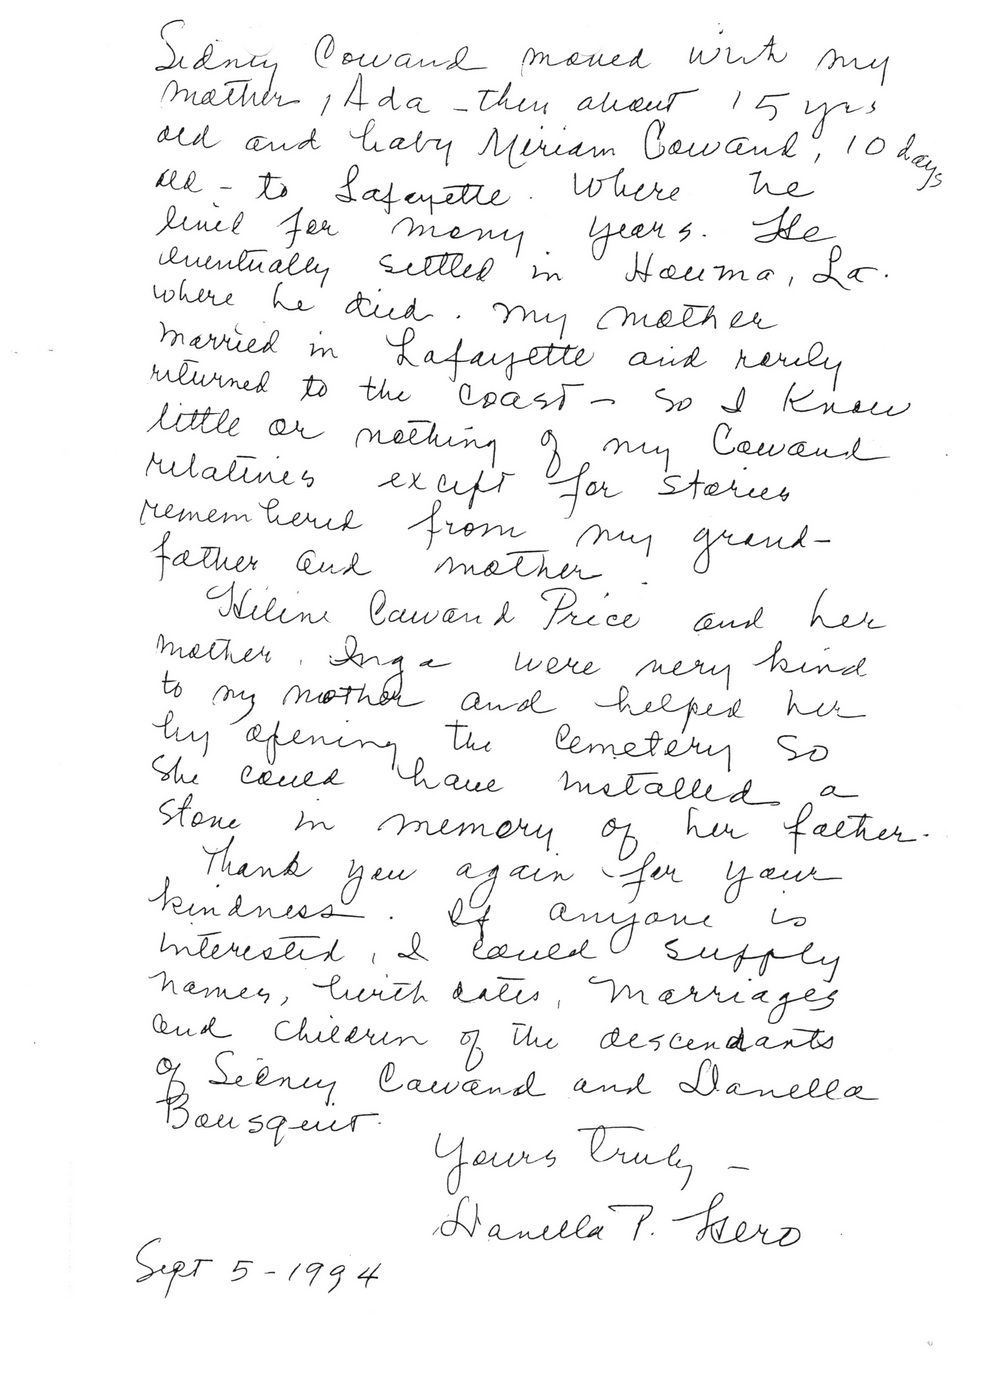 Sidney Cowand moved with my
mother, Ada - then about 15 yrs
old and baby Miriam Cowand, 10 days
old - to Lafayette. Where he
lived for many years. He
eventually settled in Houma, La.
where he died. My mother
married in Lafayette and rarely
returned to the coast - so I know
little or nothing of my Cowand
relatives except for stories
remembered from my grand-
father and mother.
Helene Cowand Price and her
mother, Inga were very kind
to my mother and helped her
by opening the cemetery so
she could have installed a
stone in memory of her father.
Thank you again for your
kindness. If anyone is
interested, I could supply
names, birth dates, marriages
and children of the descendants
of Sidney Cowand and Danella
Bousquet.
Yours truly -
Danella P. Hero
Sept 5 - 1994